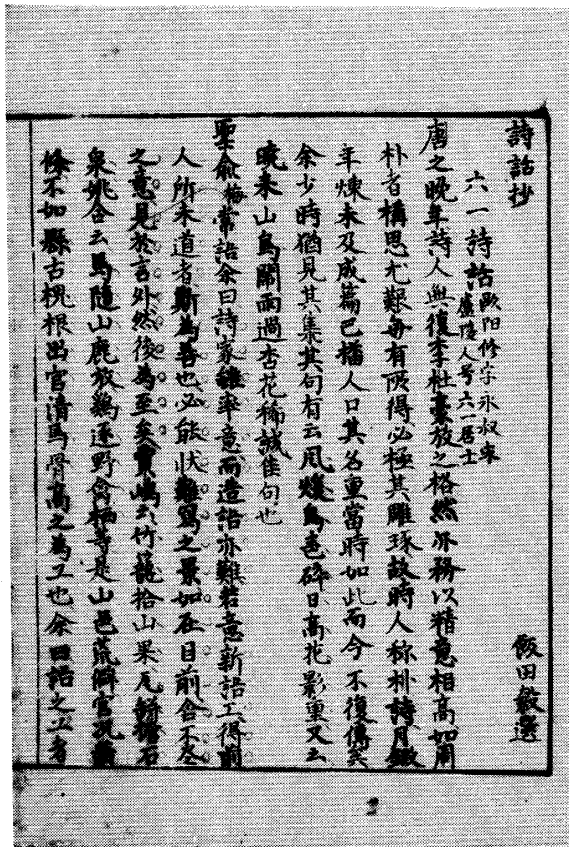 詩話抄 飯田毅選
六一詩話 歐陽修字永叔
廬陵人号六一居士
唐之晚年詩人無復李杜豪放之格然亦務以精意相高如周
朴者構思尤艱每有所得必極其雕琢故時人称朴詩月鍛
年煉未及成篇已播人口其名重當時如此而今不復傳矣
余少時猶見其集其句有云風煖鳥声碎日高花影重又云
曉来山鳥鬧雨過杏花稀誠佳句也
聖俞梅常語余曰詩家雖率意而造語亦難若意新語工得前
人所未道者斯為善也必能状難寫之景如在目前含不尽
之意見於言外然後為至矣賈嶋云竹籠拾山果瓦缾擔石
泉姚合云馬隨山鹿放鷄逐野禽栖等是山邑荒僻官況蕭
條不如縣古槐根出官清馬骨高之為工也余曰語之工者
2